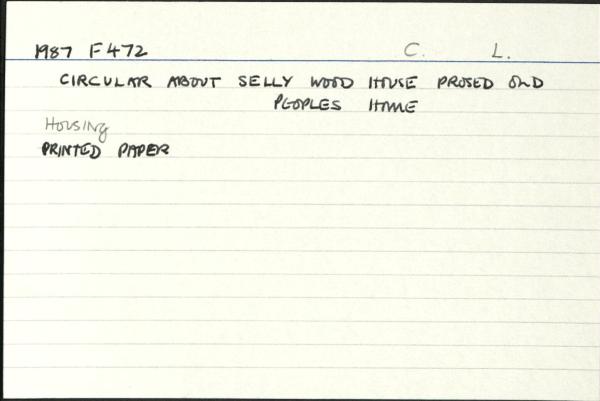 1987 F472 C. L.
CIRCULAR ABOUT SELLY WOOD HOUSE PROSED OLD
PEOPLES HOME
Housing
PRINTED PAPER